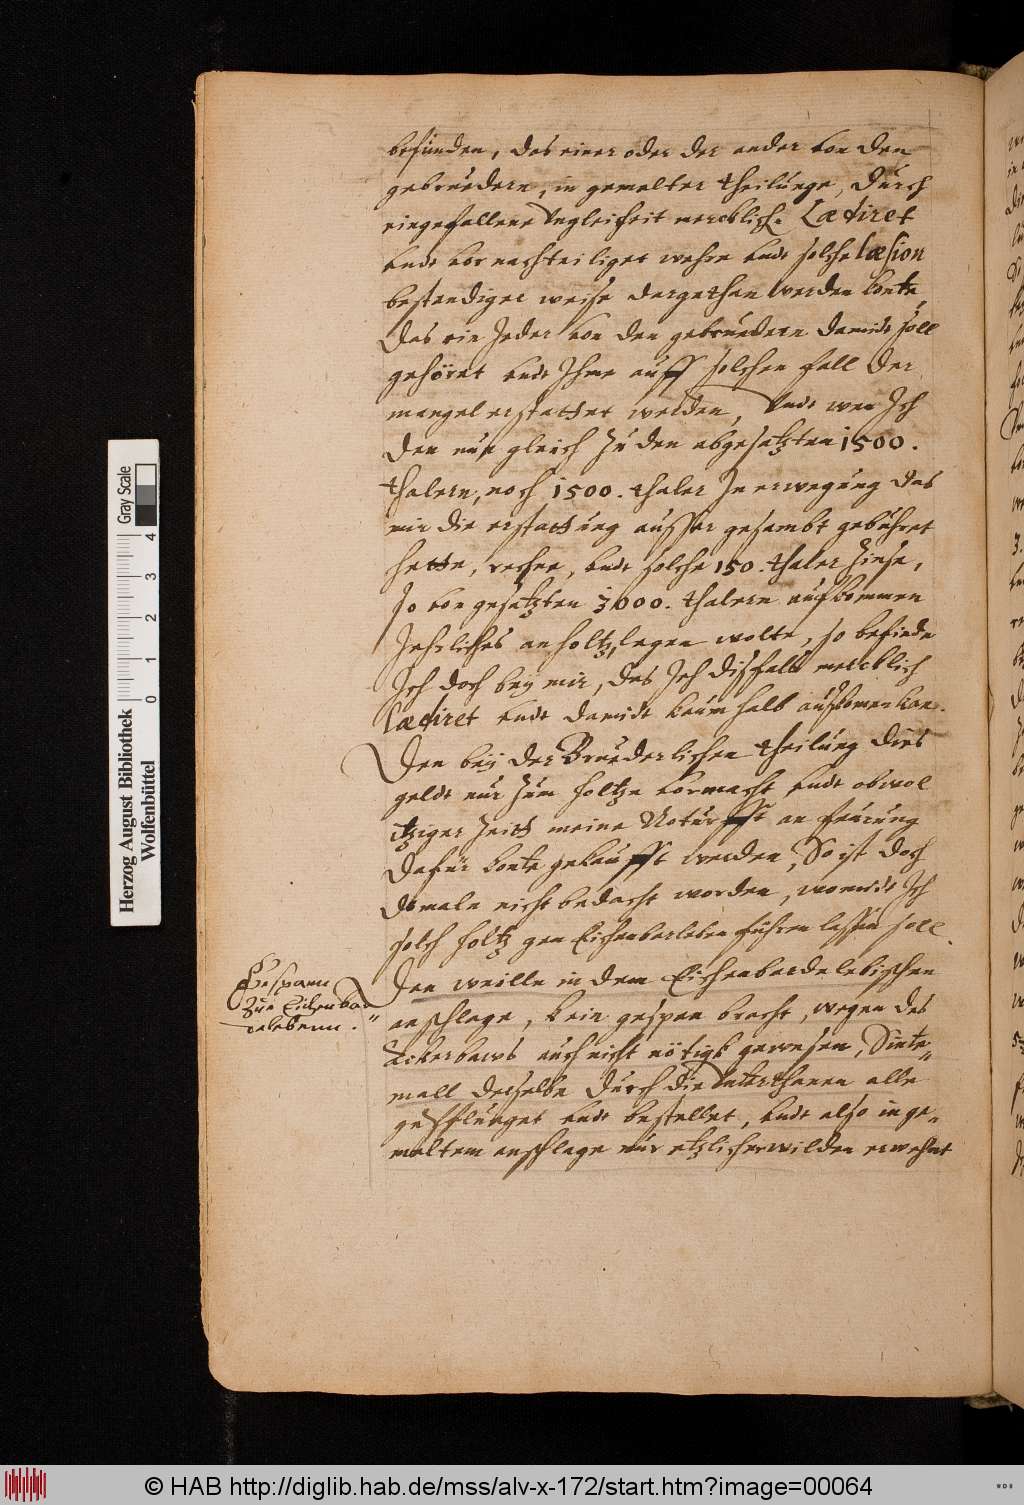 befunden, das einer oder der ander von den
gebruedern, in gemelter theilunge, durch
eingefallene Ungleicheit mercklich. Lædiret
undt vornachteiliget wehre undt solche læsion
bestendiger weise dargethan werden konte,
Das ein Jeder von den gebruedern damidt soll
gehöret undt Ihme auff solchen fall der
mangel erstattet werden, Undt wan Ich
den nun gleich zu den abgesatzten 1500.
thalern, noch 1500. thaler In erwegung das
mir die erstattung ausser gesambt gebühret
hette, rechne, undt solche 150. thaler Zinse,
so von gesatzten 3000. thalern aufkommen
Jehrliches an holtz, legen wolte, so befinde
Ich doch bey mir, das Ich disfals mercklich
lædiret undt damidt kaum halb auskomen kan.
Den bey der Bruederlichen theilung dies
geldt nur zum holtze vormacht undt obwol
itziger Zeitt meine Noturfft an feurung
dafür konte gekaufft werden, So ist doch
domaln nicht bedacht worden, womidt Ich
solch holtz gen Eichenbarleben führen lassen soll.
Gespann
zue Eichenbar
delebenn. "
Den weille in dem Eichenbardelebischen
anschlage, kein gespan bracht, wegen des
Ackerbaws auch nicht nötigk gewesen, Sinte„
mall derselbe durch die Unterthanen alle
gepflueget undt bestellet, undt also in ge„
meltem anschlage nur etzlicher wilden erwehnt
Gray Scale
0 1 2 3 4
Herzog August Bibliothek
Wolfenbüttel
© HAB http://diglib.hab.de/mss/alv-x-172/start.htm?image=00064